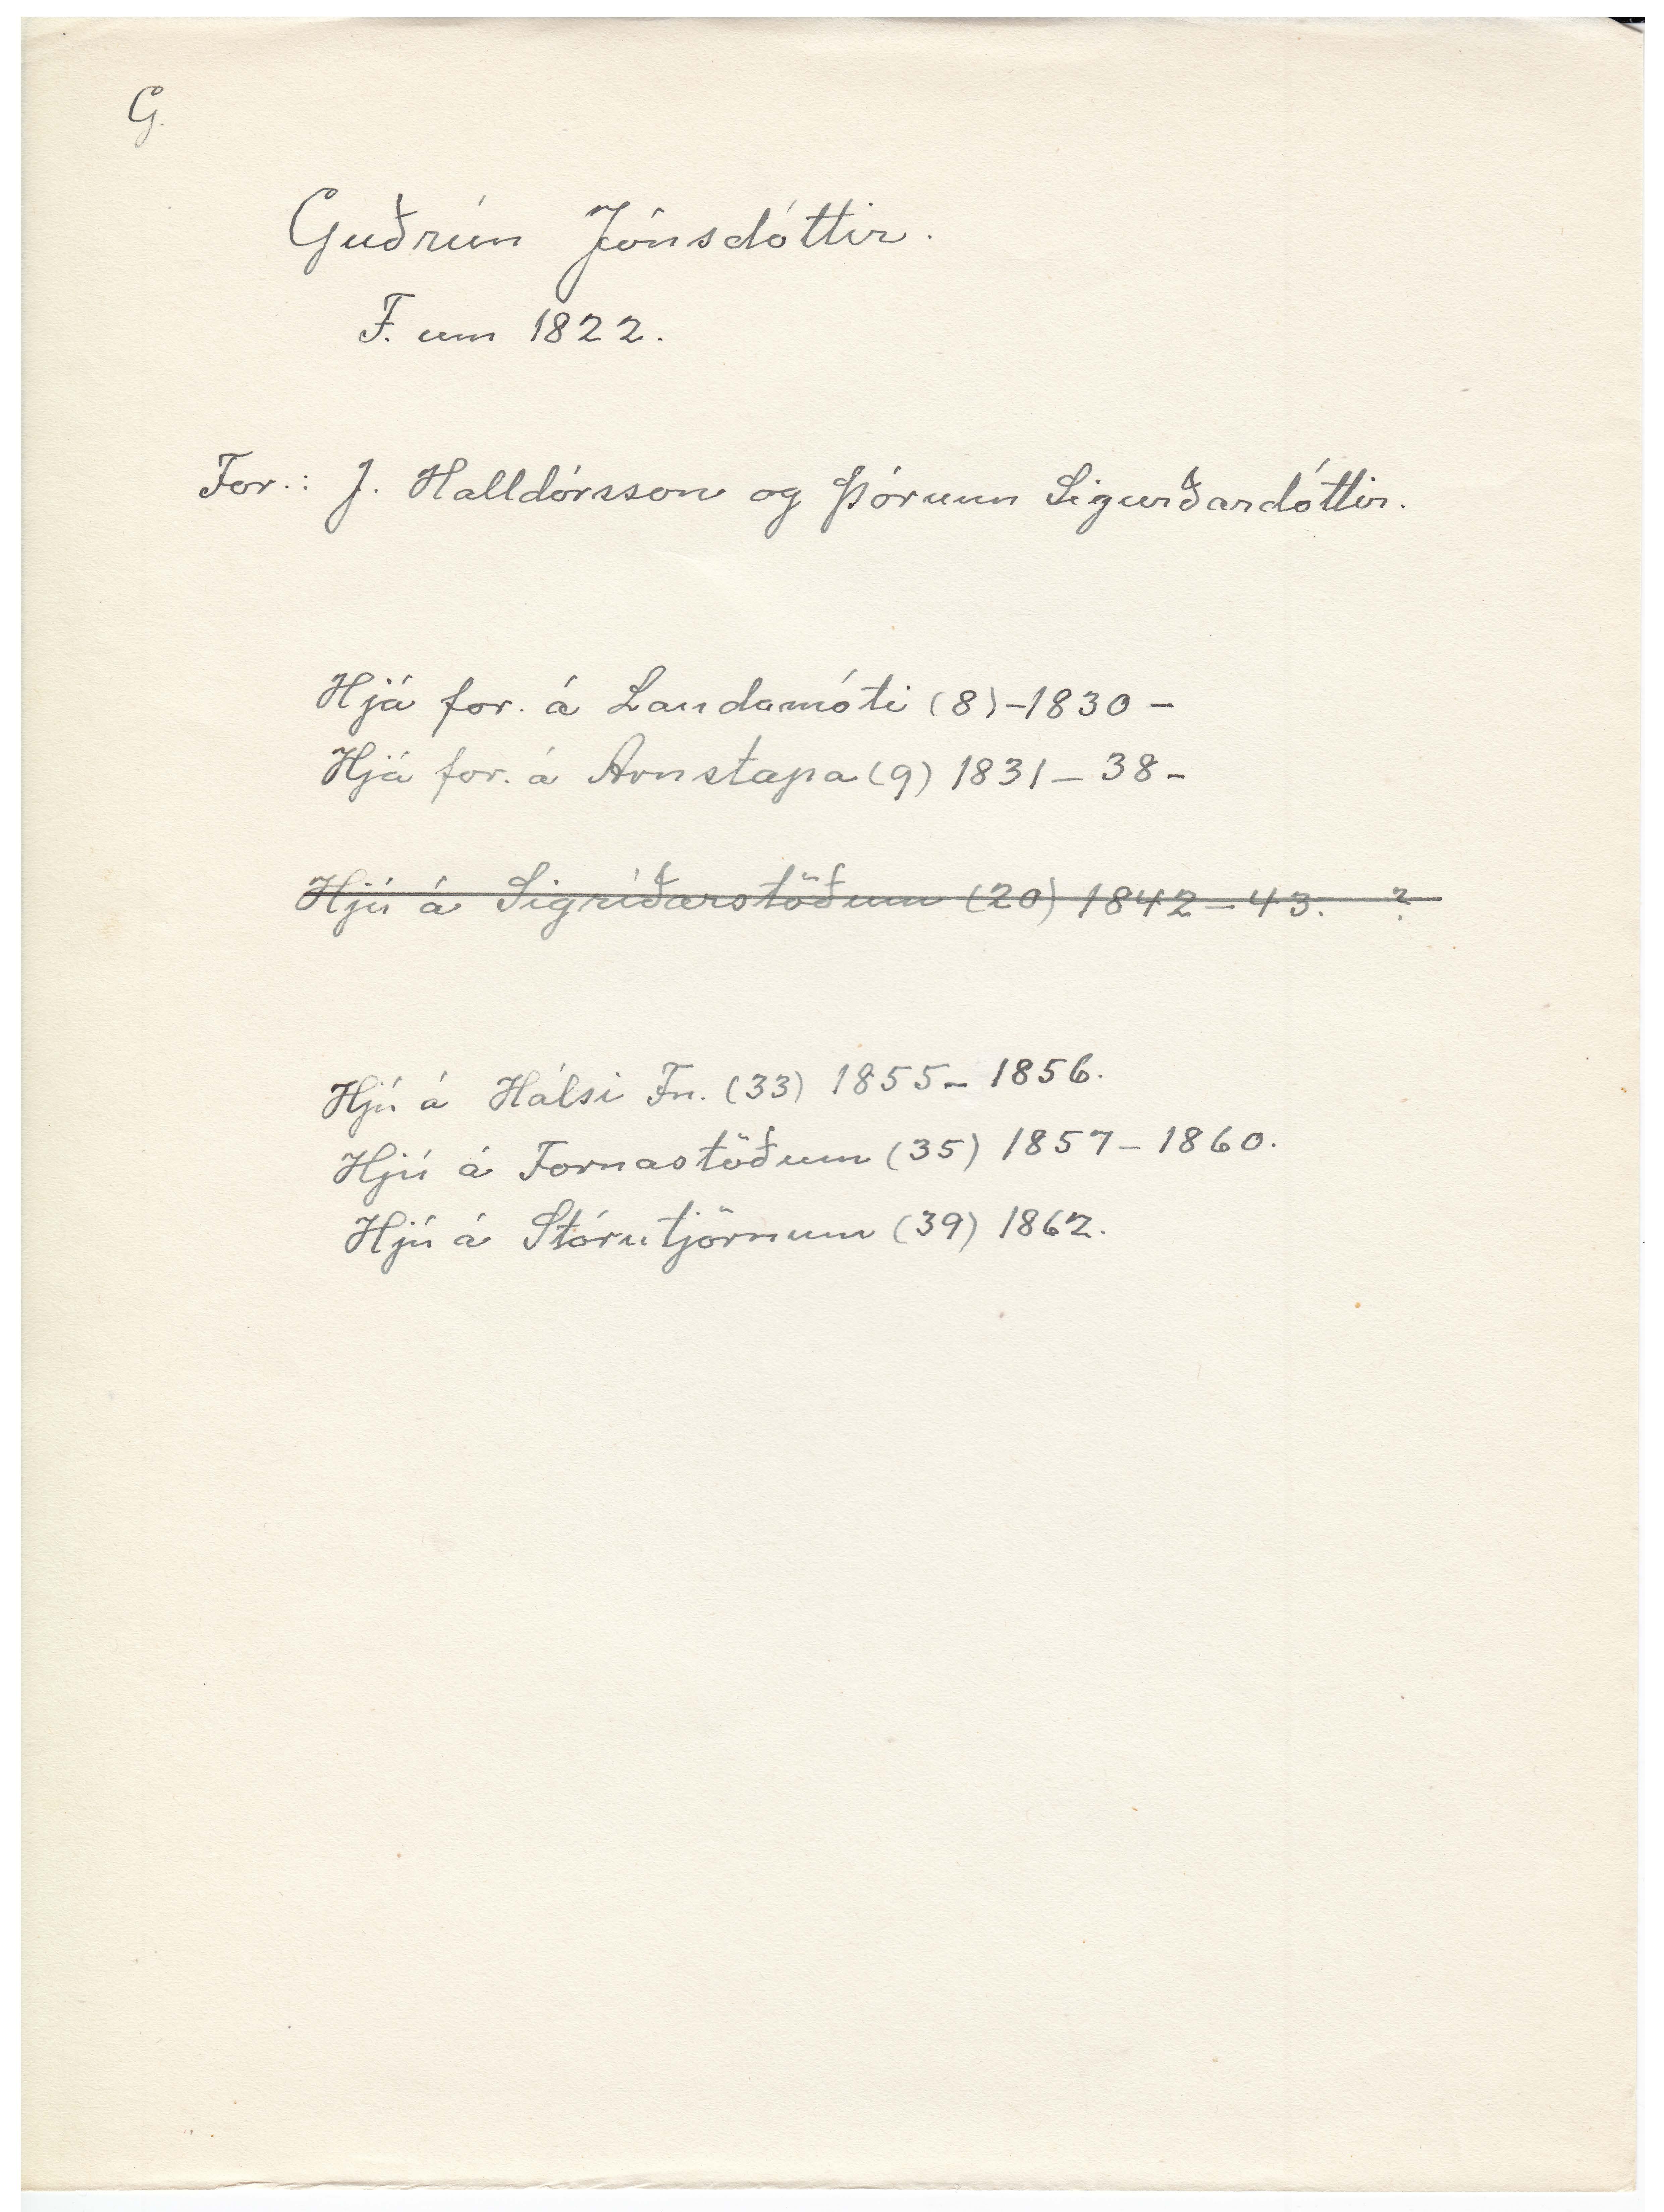 G.
Guðrún Jónsdóttir.
F. um 1822.
For.: J. Halldórsson og Þórunn Sigurðardóttir.
Hjá for. á Landamóti (8) -1830 -
Hjá for. á Arnstapa (9) 1831 - 38 -
Hjú á Sigríðarstöðum (20) 1842 - 43. ?
Hjú á Hálsi Fn. (33) 1855 - 1856.
Hjú á Fornastöðum (35) 1857 - 1860.
Hjú á Stórutjörnum (39) 1862.